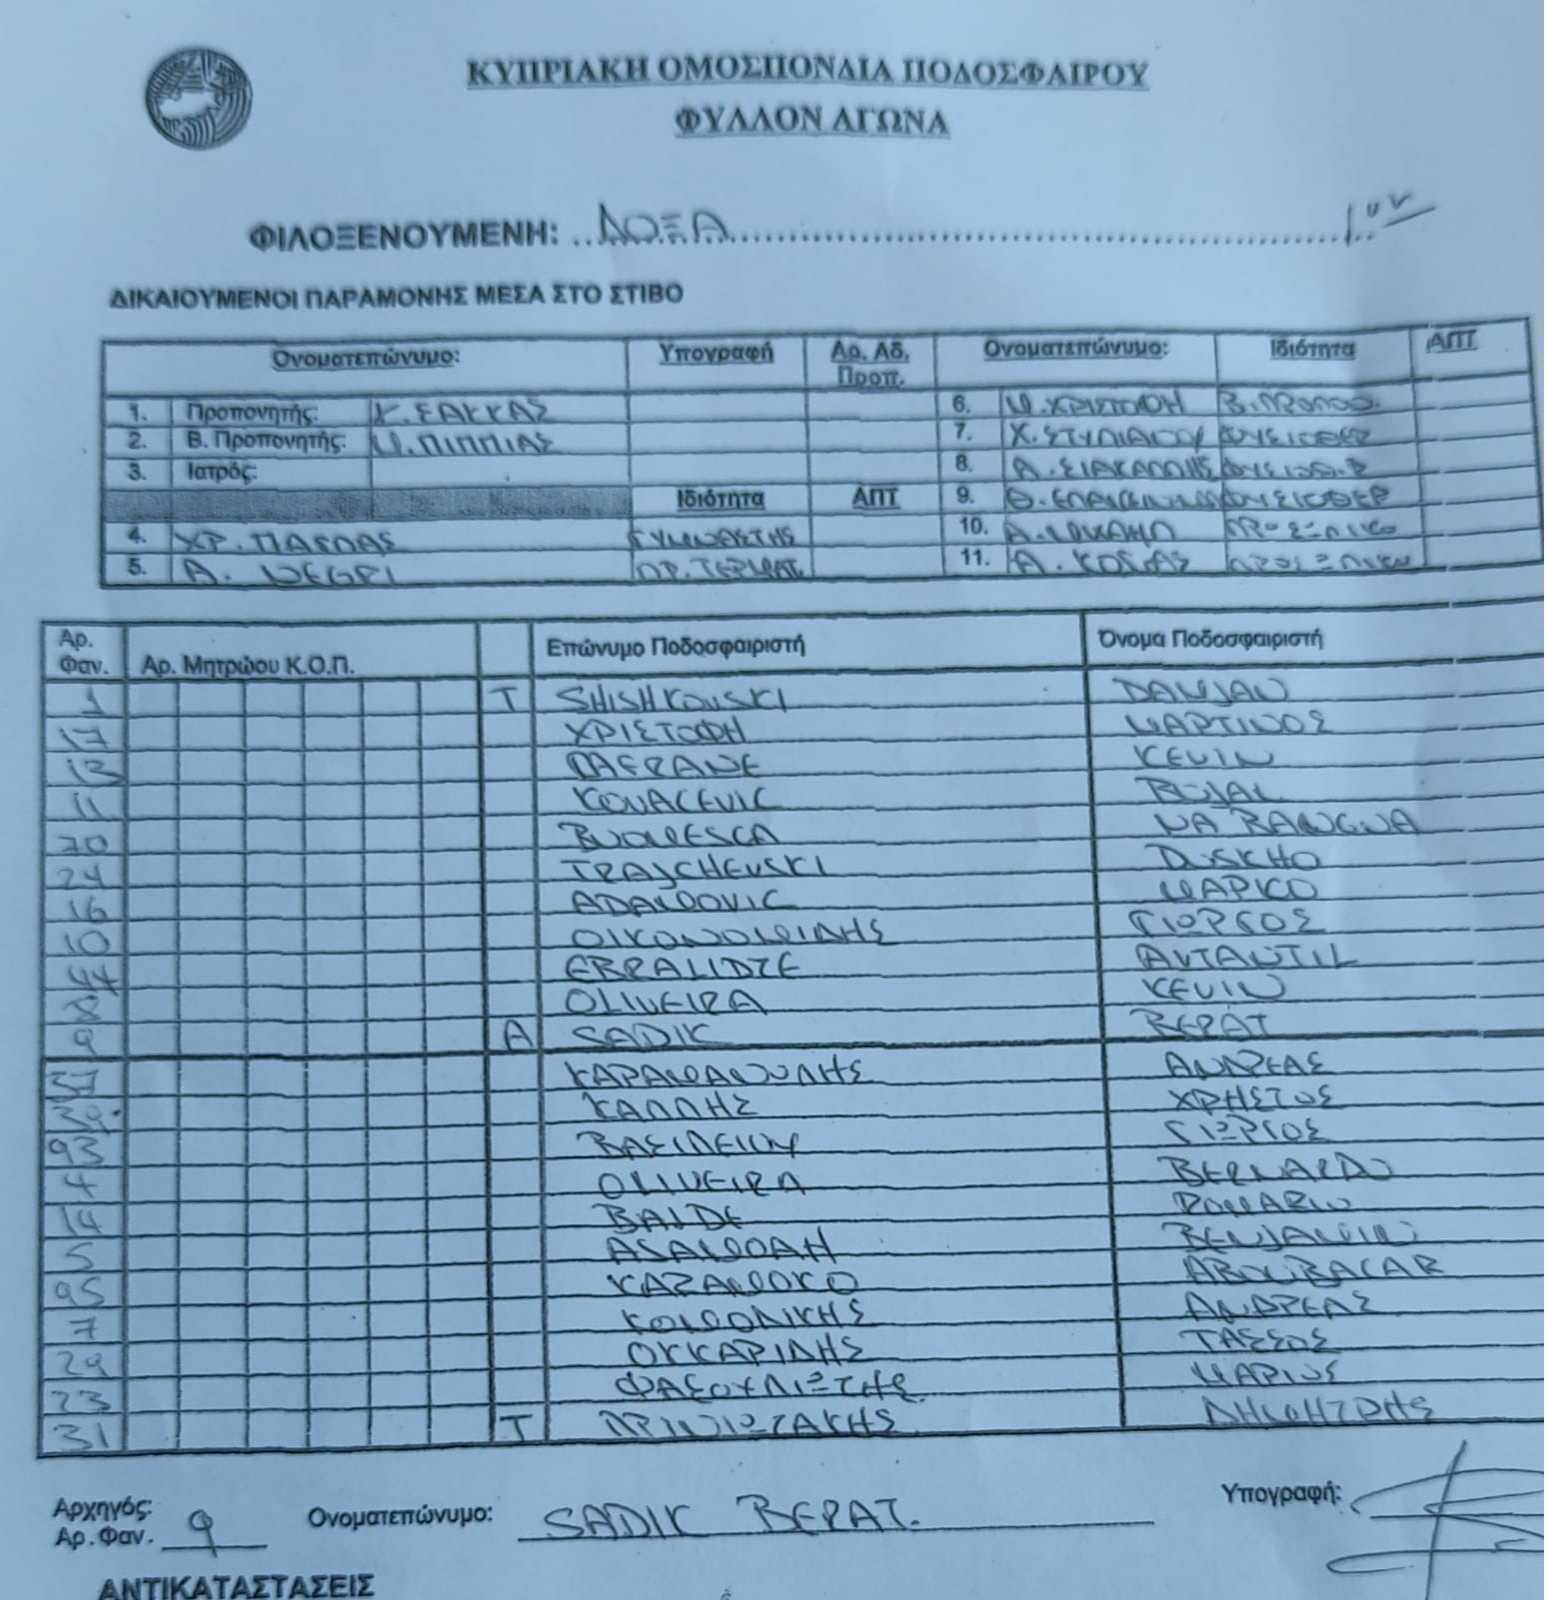 ΚΥΠΡΙΑΚΗ ΟΜΟΣΠΟΝΔΙΑ ΠΟΔΟΣΦΑΙΡΟΥ
ΦΥΛΛΟΝ ΑΓΩΝΑ
ΦΙΛΟΞΕΝΟΥΜΕΝΗ: ΔΟΞΑ
ΔΙΚΑΙΟΥΜΕΝΟΙ ΠΑΡΑΜΟΝΗΣ ΜΕΣΑ ΣΤΟ ΣΤΙΒΟ
Ονοματεπώνυμο: Υπογραφή Αρ. Αδ. Προπ. Ονοματεπώνυμο: Ιδιότητα ΑΠΤ
1. Προπονητής: Κ. ΣΑΚΚΑΣ 6. Μ. ΧΡΙΣΤΟΦΗ Β. ΠΡΟΠΟ.
2. Β. Προπονητής: Μ. ΠΙΠΠΙΑΣ 7. Χ. ΣΤΥΛΙΑΝΟΥ ΦΥΣΙΟΘΕΡ
3. Ιατρός: 8. Α. ΣΙΑΚΑΛΛΗΣ ΦΥΣΙΟΘ.Ρ
Ιδιότητα ΑΠΤ 9. Θ. ΦΥΣΙΟΘΕΡ
4. ΧΡ. ΠΑΣΠΑΣ ΓΥΜΝΑΣΤΗΣ 10. Α. ΜΙΧΑΗΛ ΠΡΟΣΩΠΙΚΟ
5. Α. ΝΕΓΡΙ ΠΡ. ΤΕΡΜΑΤ. 11. Α. ΚΟΣΙΑΣ ΠΡΟΣΩΠΙΚΟ
Αρ. Φαν. Αρ. Μητρώου Κ.Ο.Π. Επώνυμο Ποδοσφαιριστή Όνομα Ποδοσφαιριστή
1 Τ SHISHKOVSKI DAMJAN
17 ΧΡΙΣΤΟΦΗ ΜΑΡΤΙΝΟΣ
12 LAFRANE KEVIN
11 KOVACEVIC BOJAL
20 BUOMESCA NA BANGNA
24 TRAJCHEVSKI DUSKHO
16 ADAMOVIC ΜΑΡΚΟ
10 ΟΙΚΟΝΟΜΙΔΗΣ ΓΙΩΡΓΟΣ
44 EBRALIDZE AVTANTIL
8 OLIVEIRA KEVIN
9 Α SADIK ΒΕΡΑΤ
51 ΚΑΡΑΜΑΝΩΛΗΣ ΑΝΔΡΕΑΣ
ΚΑΛΛΗΣ ΧΡΗΣΤΟΣ
93 ΒΑΣΙΛΕΙΟΥ ΓΙΩΡΓΟΣ
4 OLIVEIRA BERNARDO
14 BALDE ROMARIO
5 ASAMOAH BENJAMIN
95 ΚΑΖΑΜΟΚΟ ABOUBACAR
7 ΚΟΜΟΔΙΚΗΣ ΑΝΔΡΕΑΣ
29 ΟΚΚΑΡΙΔΗΣ ΤΑΣΣΟΣ
23 ΦΑΣΟΥΛΙΩΤΗΣ ΜΑΡΙΟΣ
31 Τ ΠΡΙΝΙΩΤΑΚΗΣ ΔΗΜΗΤΡΗΣ
Αρχηγός: Αρ. Φαν. 9 Ονοματεπώνυμο: SADIK ΒΕΡΑΤ. Υπογραφή:
ΑΝΤΙΚΑΤΑΣΤΑΣΕΙΣ